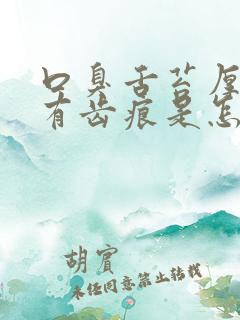 口臭舌苔厚
有齿痕是怎
胡宾
未经同意禁止转载